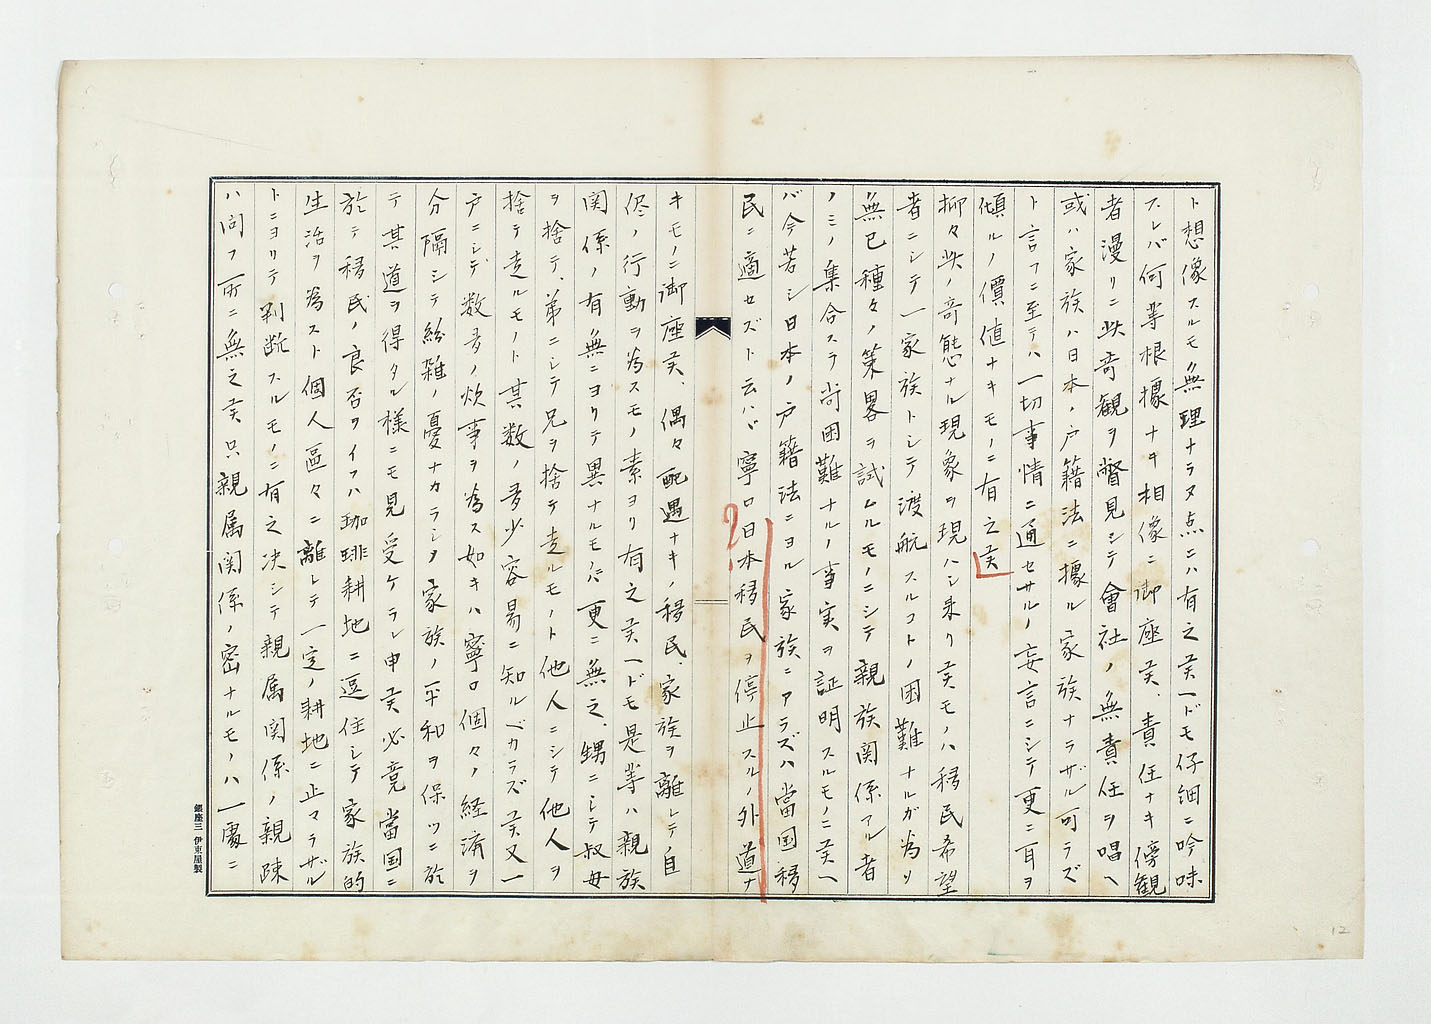 ト想像スルモ無理ナラヌ点ニハ有之候ヘドモ仔細ニ吟味
スレバ何等根據ナキ想像ニ御座候、責任ナキ傍観
者漫リニ此奇観ヲ瞥見シテ會社ノ無責任ヲ唱ヘ
或ハ家族ハ日本ノ戸籍法ニ據ル家族ナラザル可ラズ
ト言フニ至テハ一切事情ニ通セサルノ妄言ニシテ更ニ耳ヲ
傾ルノ價値ナキモノニ有之候
抑々此ノ奇態ナル現象ヲ現ハシ来リ候モノハ移民希望
者ニシテ一家族トシテ渡航スルコトノ困難ナルガ為メ
無已種々ノ策畧ヲ試ムルモノニシテ親族関係アル者
ノミノ集合スラ尚困難ナルノ事実ヲ証明スルモノニ候ヘ
バ今若シ日本ノ戸籍法ニヨル家族ニアラズハ當国移
民ニ適セズト云ハヾ寧ロ日本移民ヲ停止スルノ外道ナ
キモノニ御座候、偶々配遇ナキノ移民、家族ヲ離レテ自
侭ノ行動ヲ為スモノ素ヨリ有之候ヘドモ是等ハ親族
関係ノ有無ニヨリテ異ナルモノニハ更ニ無之、甥ニシテ叔母
ヲ捨テ、弟ニシテ兄ヲ捨テ走ルモノト他人ニシテ他人ヲ
捨テ走ルモノト其数ノ多少容易ニ知ルベカラズ候又一
戸ニシテ数多ノ炊事ヲ為ス如キハ寧ロ個々ノ経済ヲ
分隔シテ紛雑ノ憂ナカラシメ家族ノ平和ヲ保ツニ於
テ其道ヲ得タル様ニモ見受ケラレ申候必竟當国ニ
於テ移民ノ良否ヲイフハ珈琲耕地ニ逗住シテ家族的
生活ヲ為スト個人區々ニ離レテ一定ノ耕地ニ止マラザル
トニヨリテ判断スルモノニ有之决シテ親属関係ノ親疎
ハ問フ所ニ無之候只親属関係ノ密ナルモノハ一處ニ
銀座三 伊東屋製
12